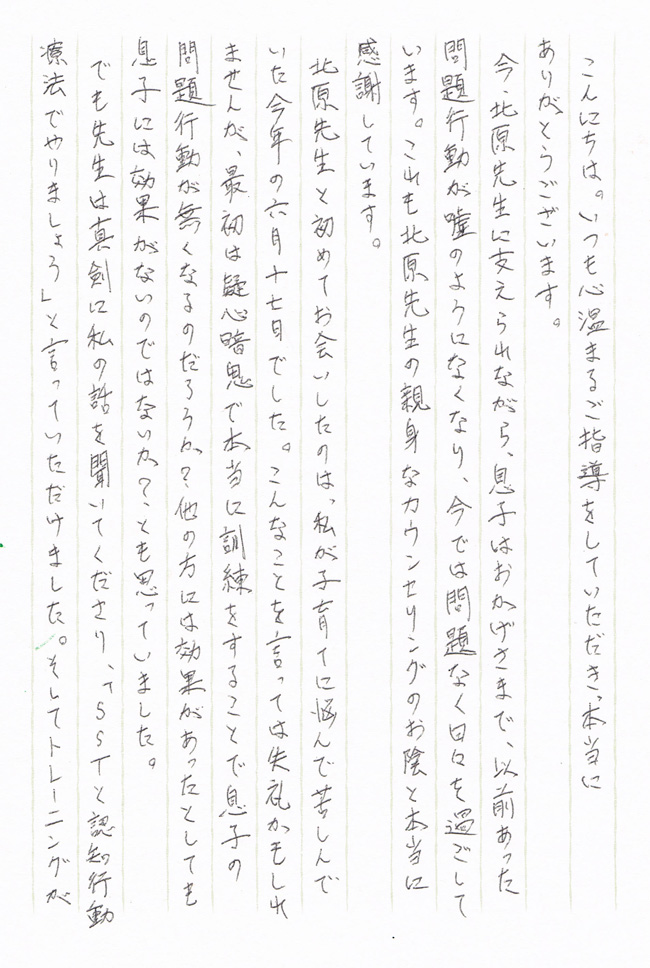 こんにちは。いつも心温まるご指導をしていただき、本当に
ありがとうございます。
今、北原先生に支えられながら、息子はおかげさまで、以前あった
問題行動が嘘のようになくなり、今では問題なく日々を過ごして
います。これも北原先生の親身なカウンセリングのお陰と本当に
感謝しています。
北原先生と初めてお会いしたのは、私が子育てに悩んで苦しんで
いた今年の六月十七日でした。こんなことを言っては失礼かもしれ
ませんが、最初は疑心暗鬼で本当に訓練をすることで息子の
問題行動が無くなるのだろうか?他の方には効果があったとしても
息子には効果がないのではないか?、とも思っていました。
でも先生は真剣に私の話を聞いてくださり、「SSTと認知行動
療法でやりましょう」と言っていただけました。そしてトレーニングが